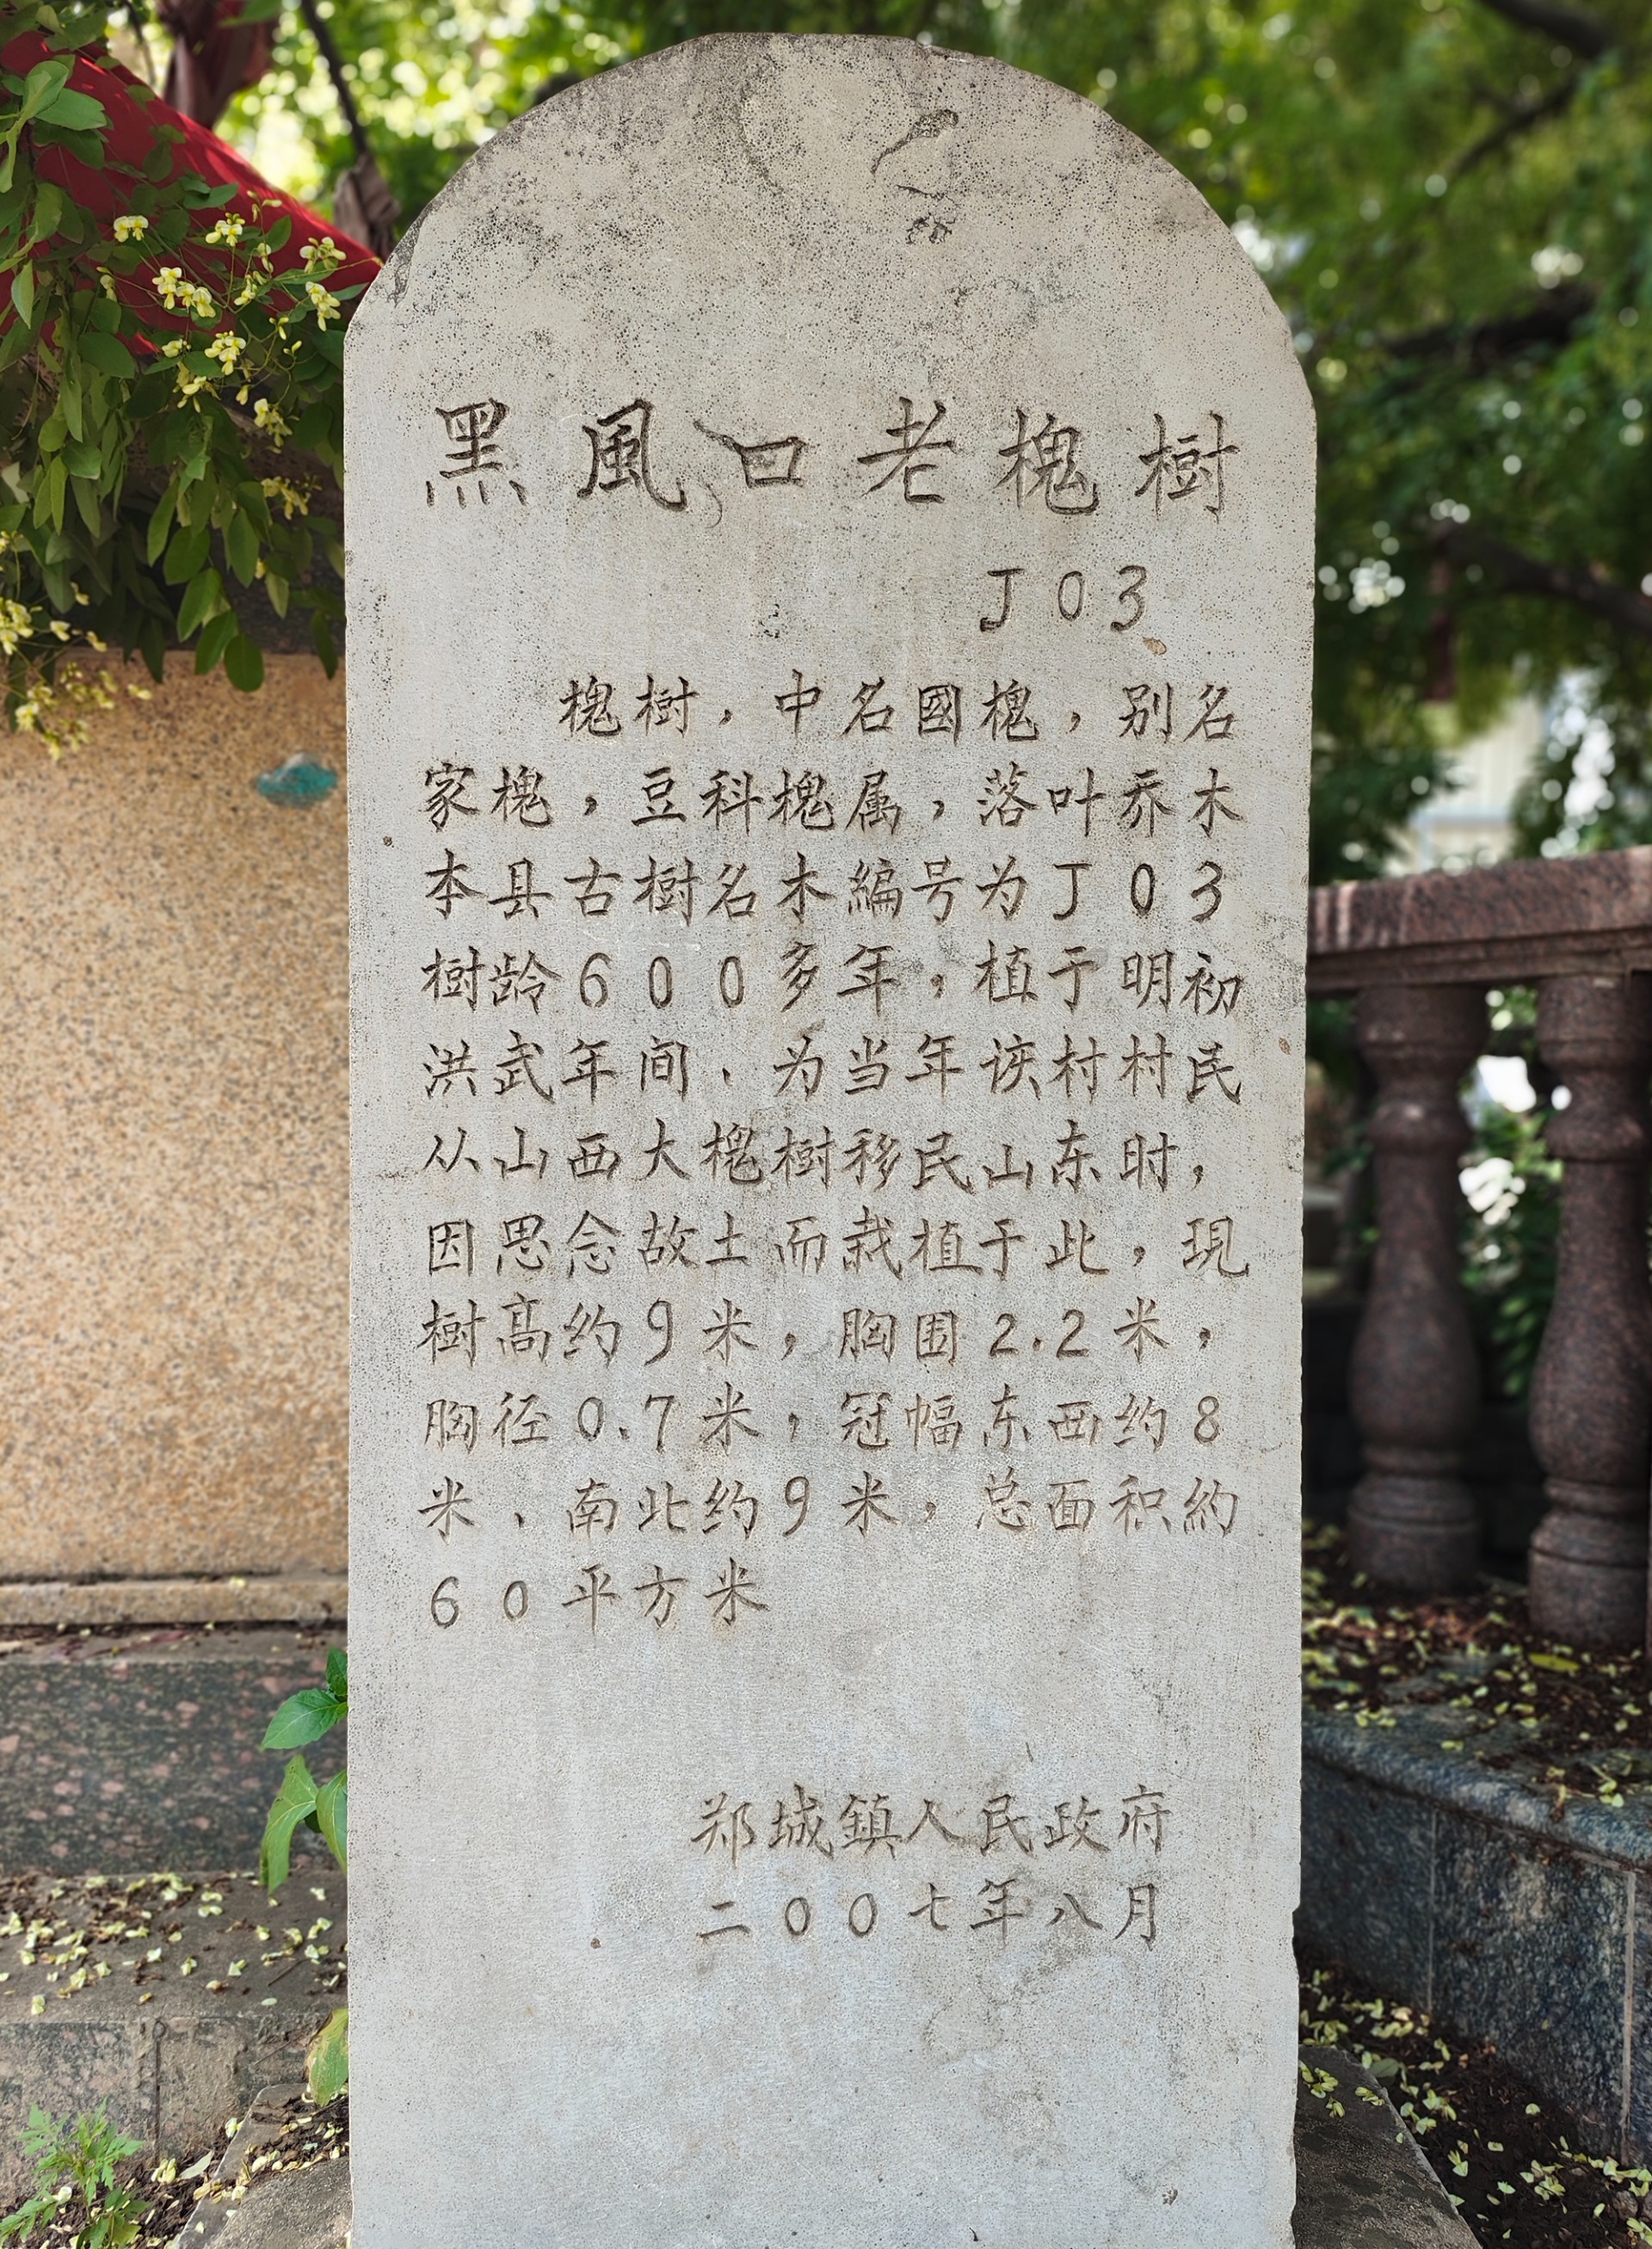 黑風口老槐樹
J03
槐樹，中名國槐，别名
家槐，豆科槐属，落叶乔木
本县古樹名木編号为J03
樹龄600多年，植于明初
洪武年间，为当年该村村民
从山西大槐樹移民山东时，
因思念故土而栽植于此，現
樹高约9米，胸围2.2米，
胸径0.7米，冠幅东西约8
米、南北约9米，总面积約
60平方米
郑城鎮人民政府
二00七年八月